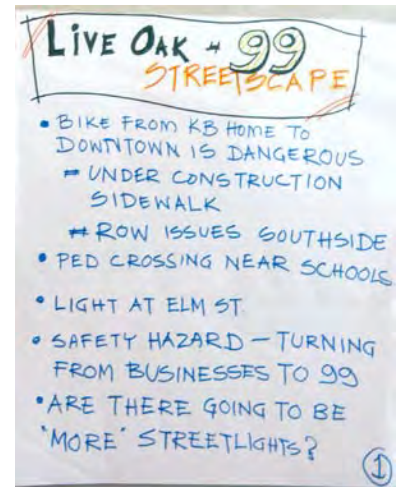 LIVE OAK - 99
STREETSCAPE
• BIKE FROM KB HOME TO
DOWNTOWN IS DANGEROUS
- UNDER CONSTRUCTION
SIDEWALK
- ROW ISSUES SOUTHSIDE
• PED CROSSING NEAR SCHOOLS
• LIGHT AT ELM ST.
• SAFETY HAZARD - TURNING
FROM BUSINESSES TO 99
• ARE THERE GOING TO BE
"MORE" STREETLIGHTS?
1